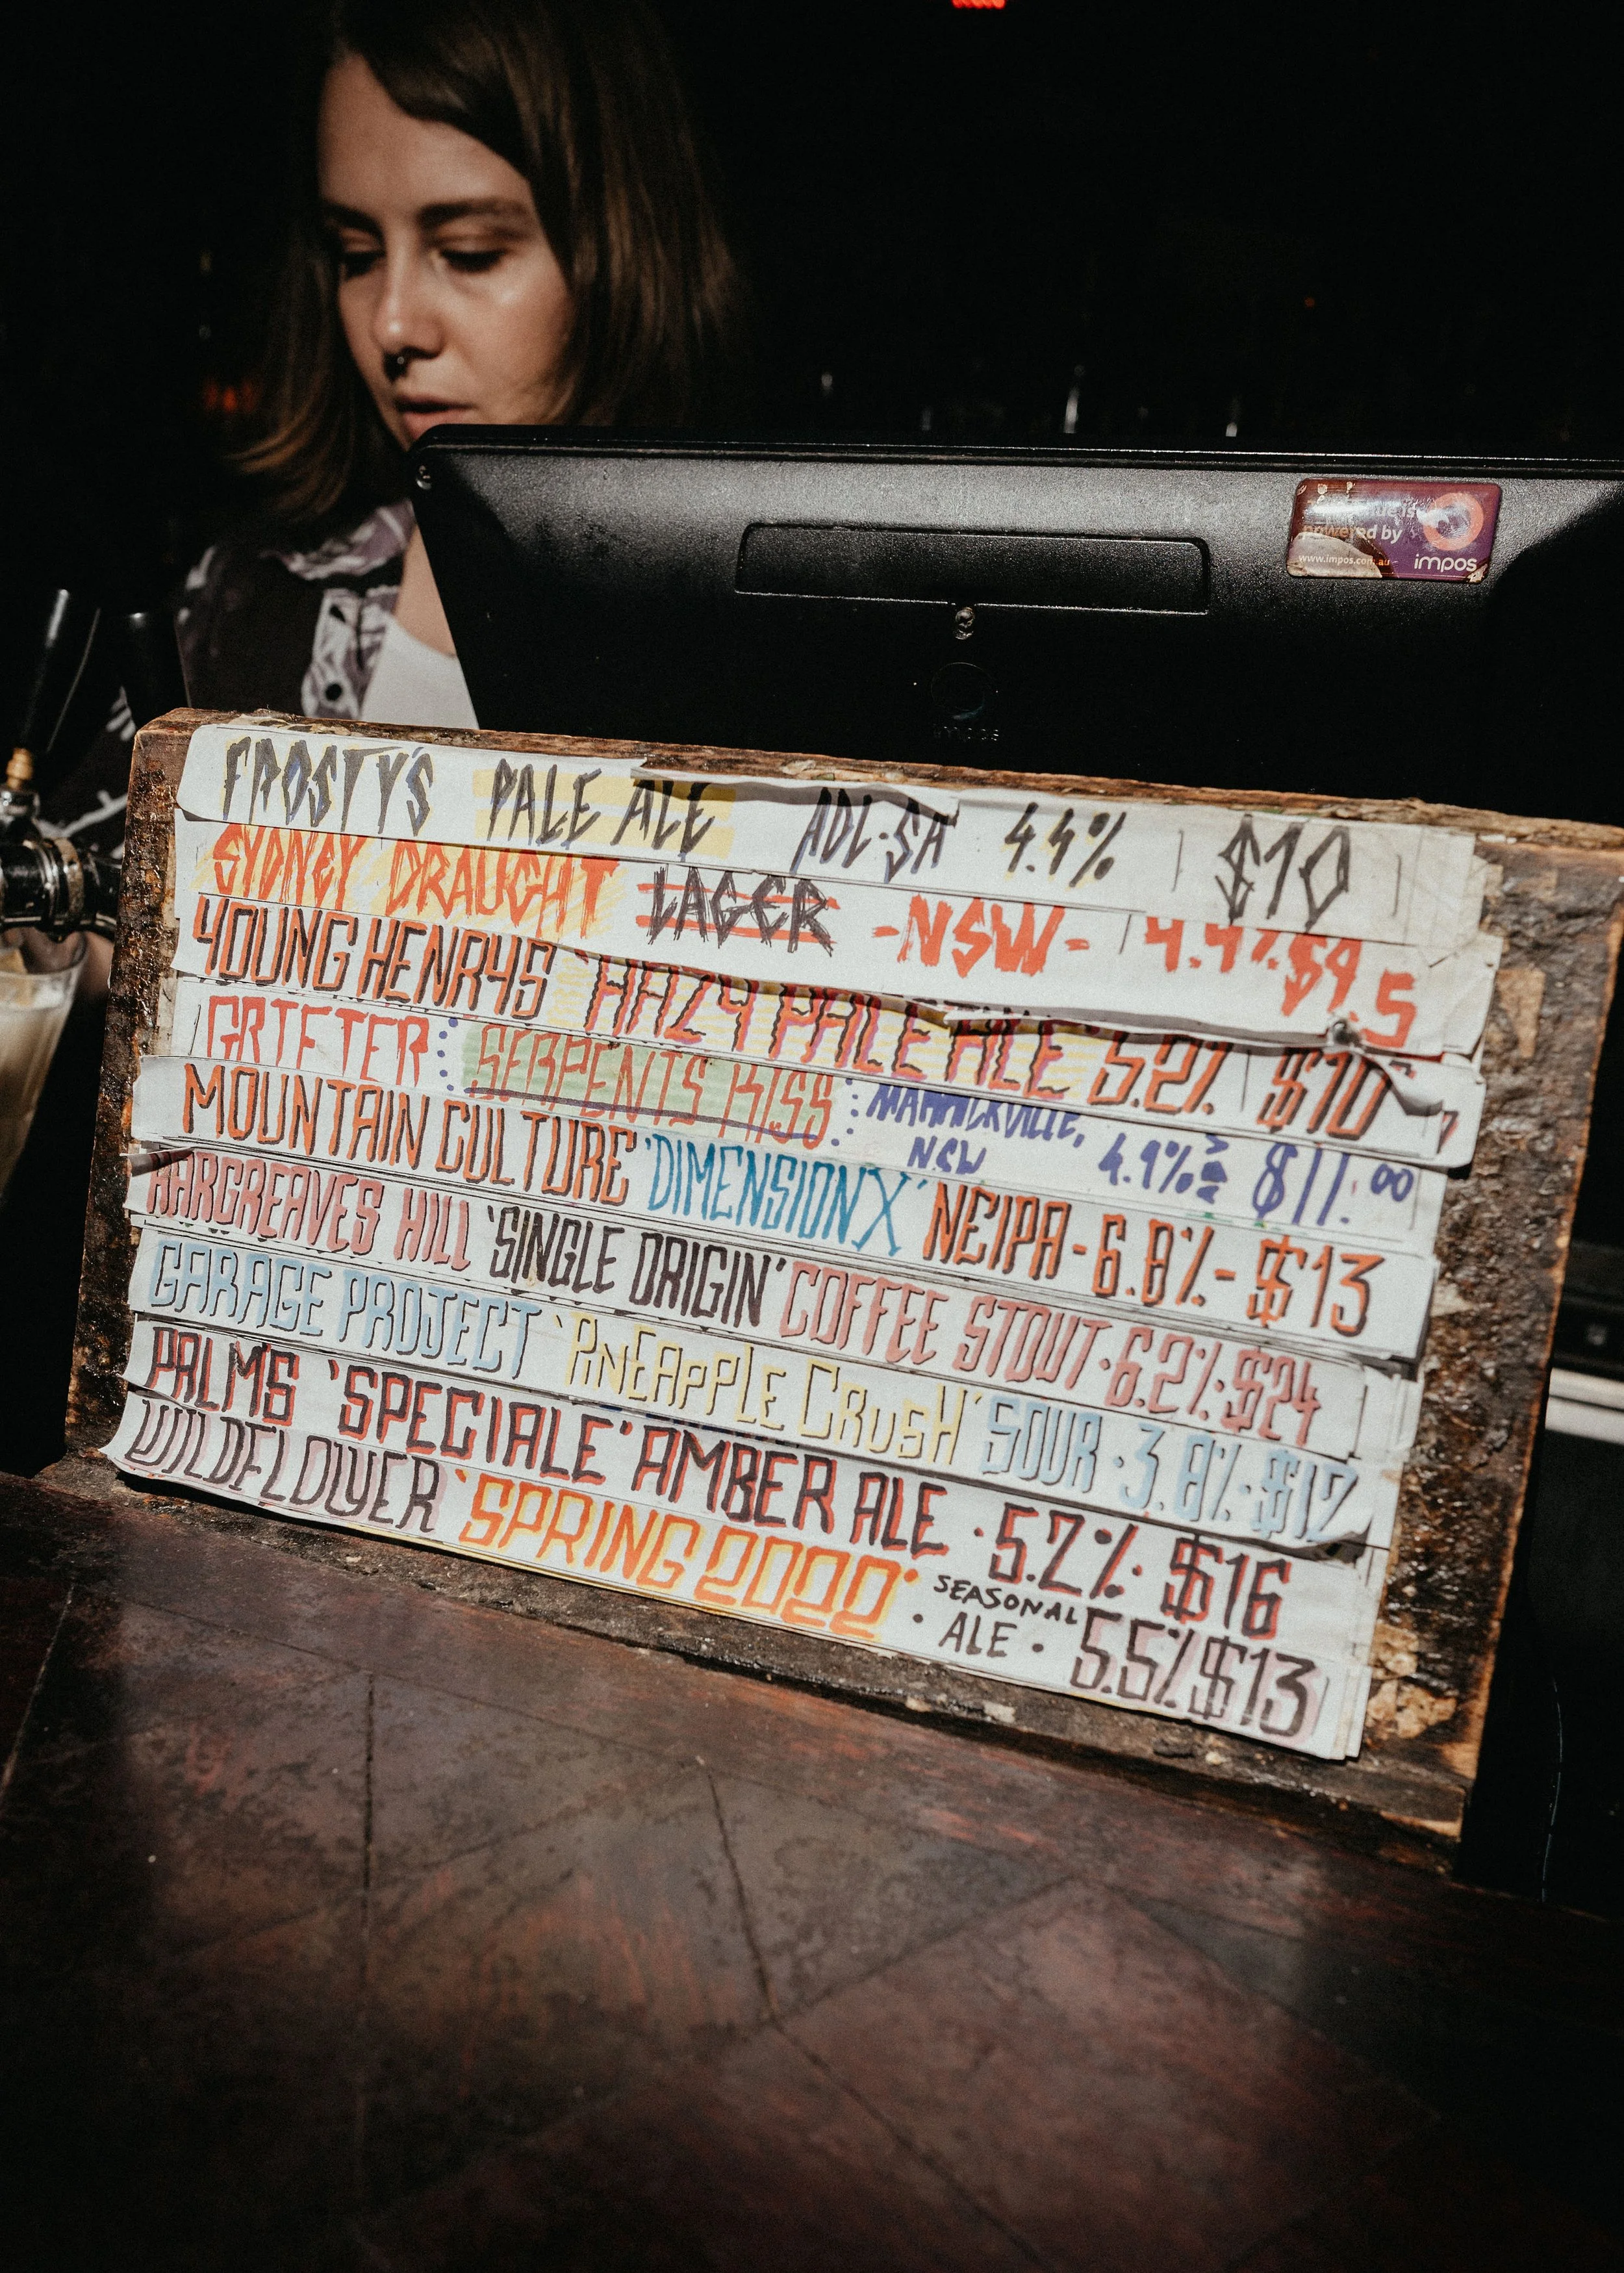 powered by
www.impos.com.au
impos
FROSTY'S PALE ALE ADL·SA 4.4% $10
SYDNEY DRAUGHT LAGER -NSW- 4.4% $9.5
YOUNG HENRYS 'HAZY PALE ALE' 5.2% $10
GRIFTER : SERPENTS KISS : MARRICKVILLE, NSW 4.9% $11.00
MOUNTAIN CULTURE 'DIMENSION X' NEIPA - 6.8% - $13
HARGREAVES HILL 'SINGLE ORIGIN' COFFEE STOUT · 6.2% · $24
GARAGE PROJECT 'PINEAPPLE CRUSH' SOUR · 3.8% · $12
PALMS 'SPECIALE' AMBER ALE · 5.2% · $16
WILDFLOWER 'SPRING 2022' · SEASONAL ALE · 5.5% $13